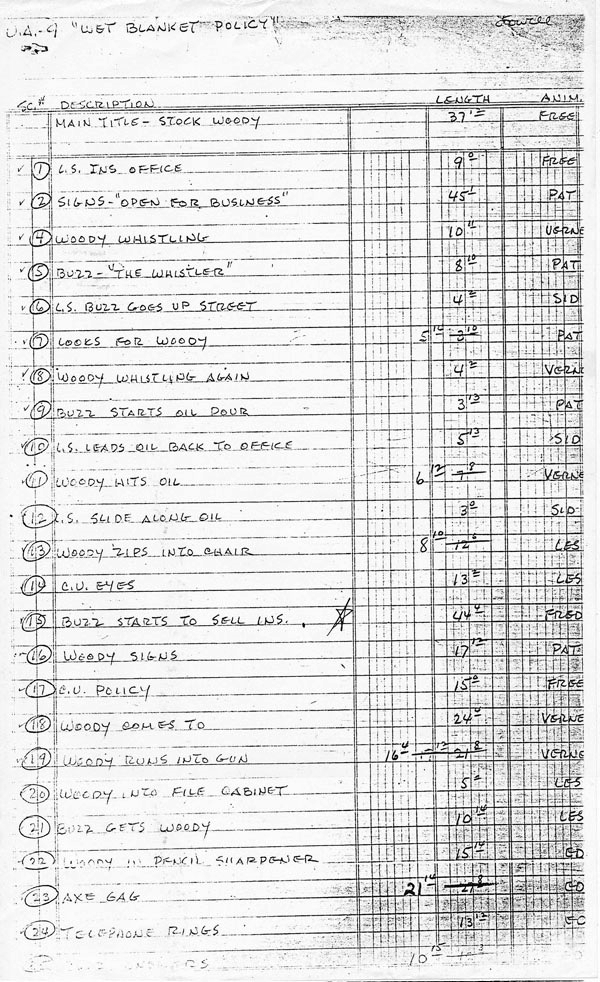 U.A.-9 "WET BLANKET POLICY"
SC.# DESCRIPTION LENGTH ANIM.
MAIN TITLE- STOCK WOODY 37 12 FREE
1 L.S. INS OFFICE 9 0 FREE
2 SIGNS-"OPEN FOR BUSINESS" 45 PAT
4 WOODY WHISTLING 10 11 VERNE
5 BUZZ-"THE WHISTLER" 8 10 PAT
6 L.S. BUZZ GOES UP STREET 4 SID
7 LOOKS FOR WOODY 5 PAT
8 WOODY WHISTLING AGAIN 4 VERNE
9 BUZZ STARTS OIL POUR 3 13 PAT
10 L.S. LEADS OIL BACK TO OFFICE 5 13 SID
11 WOODY HITS OIL 6 12 VERNE
12 L.S. SLIDE ALONG OIL 3 0 SID
13 WOODY ZIPS INTO CHAIR 8 10 LES
14 C.U. EYES 13 LES
15 BUZZ STARTS TO SELL INS. 44 FRED
16 WOODY SIGNS 17 12 PAT
17 C.U. POLICY 15 0 FREE
18 WOODY COMES TO 24 VERNE
19 WOODY RUNS INTO GUN 16 VERNE
20 WOODY INTO FILE CABINET 5 LES
21 BUZZ GETS WOODY 10 14 LES
22 WOODY IN PENCIL SHARPENER 15 ED
23 AXE GAG 21 ED
24 TELEPHONE RINGS 13 12 ED
10 15